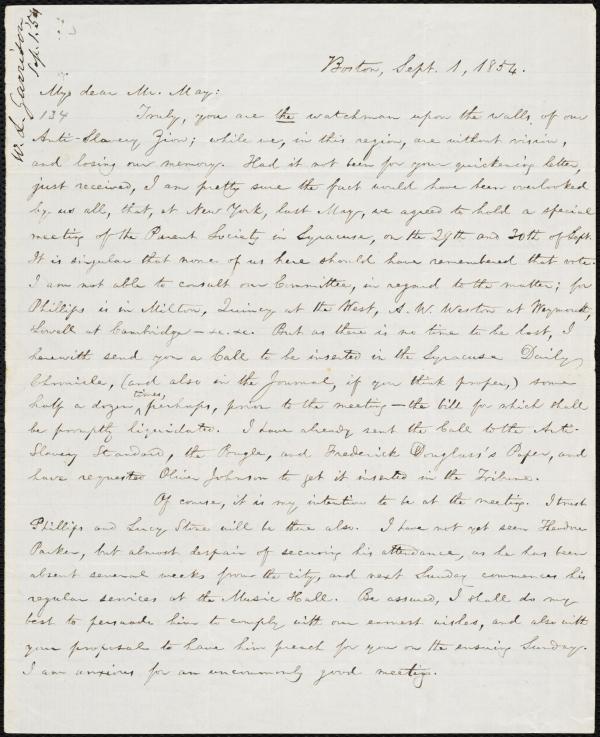 W. L. Garrison
Sep. 1. 54
Boston, Sept. 1, 1854.
My dear Mr. May:
134 Truly, you are the watchman upon the walls of our
Anti-Slavery Zion; while we, in this region, are without vision,
and losing our memory. Had it not been for your quickening letter,
just received, I am pretty sure the fact would have been overlooked
by us all, that, at New York, last May, we agreed to hold a special
meeting of the Parent Society in Syracuse, on the 29th and 30th of Sept.
It is singular that none of us here should have remembered that vote.
I am not able to consult our Committee, in regard to the matter; for
Phillips is in Milton, Quincy at the West, A. W. Weston at Weymouth,
Lowell at Cambridge – &c. &c. But as there is no time to be lost, I
herewith send you a Call to be inserted in the Syracuse Daily
Chronicle, (and also in the Journal, if you think proper,) some
half a dozen times, perhaps, prior to the meeting — the bill for which shall
be promptly liquidated. I have already sent the Call to the Anti-
Slavery Standard, the Bugle, and Frederick Douglass's Paper, and
have requested Oliver Johnson to get it inserted in the Tribune.
Of course, it is my intention to be at the meeting. I trust
Phillips and Lucy Stone will be there also. I have not yet seen Theodore
Parker, but almost despair of securing his attendance, as he has been
absent several weeks from the city, and next Sunday commences his
regular services at the Music Hall. Be assured, I shall do my
best to persuade him to comply with our earnest wishes, and also with
your proposal to have him preach for you on the ensuing Sunday.
I am anxious for an uncommonly good meeting.